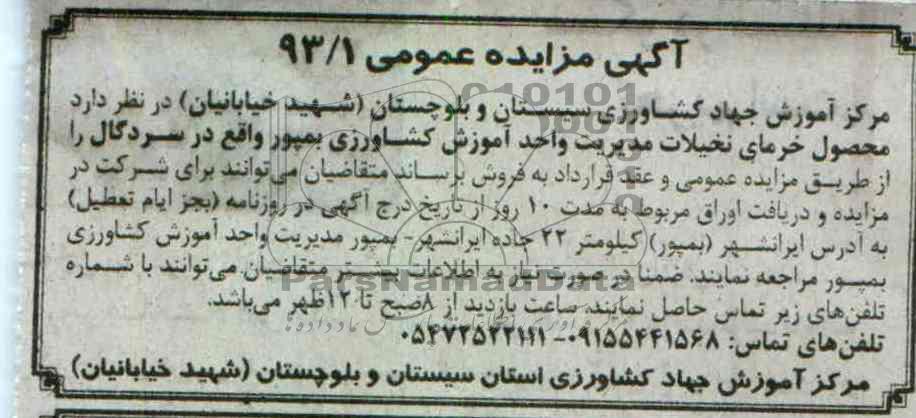 آگهی مزایده عمومی ۹۳/۱
مرکز آموزش جهاد کشاورزی سیستان و بلوچستان (شهید خیابانیان) در نظر دارد
محصول خرمای نخیلات مدیریت واحد آموزش کشاورزی بمپور واقع در سردگال را
از طریق مزایده عمومی و عقد قرارداد به فروش برساند متقاضیان می‌توانند برای شرکت در
مزایده و دریافت اوراق مربوط به مدت ۱۰ روز از تاریخ درج آگهی در روزنامه (بجز ایام تعطیل)
به آدرس ایرانشهر (بمپور) کیلومتر ۲۲ جاده ایرانشهر- بمپور مدیریت واحد آموزش کشاورزی
بمپور مراجعه نمایند. ضمنا در صورت نیاز به اطلاعات بیشتر متقاضیان می‌توانند با شماره
تلفن‌های زیر تماس حاصل نمایند. ساعت بازدید از ۸صبح تا ۱۲ظهر می‌باشد.
تلفن‌های تماس: ۰۹۱۵۵۴۴۱۵۶۸-
مرکز آموزش جهاد کشاورزی استان سیستان و بلوچستان (شهید خیابانیان)
ParsNamadData